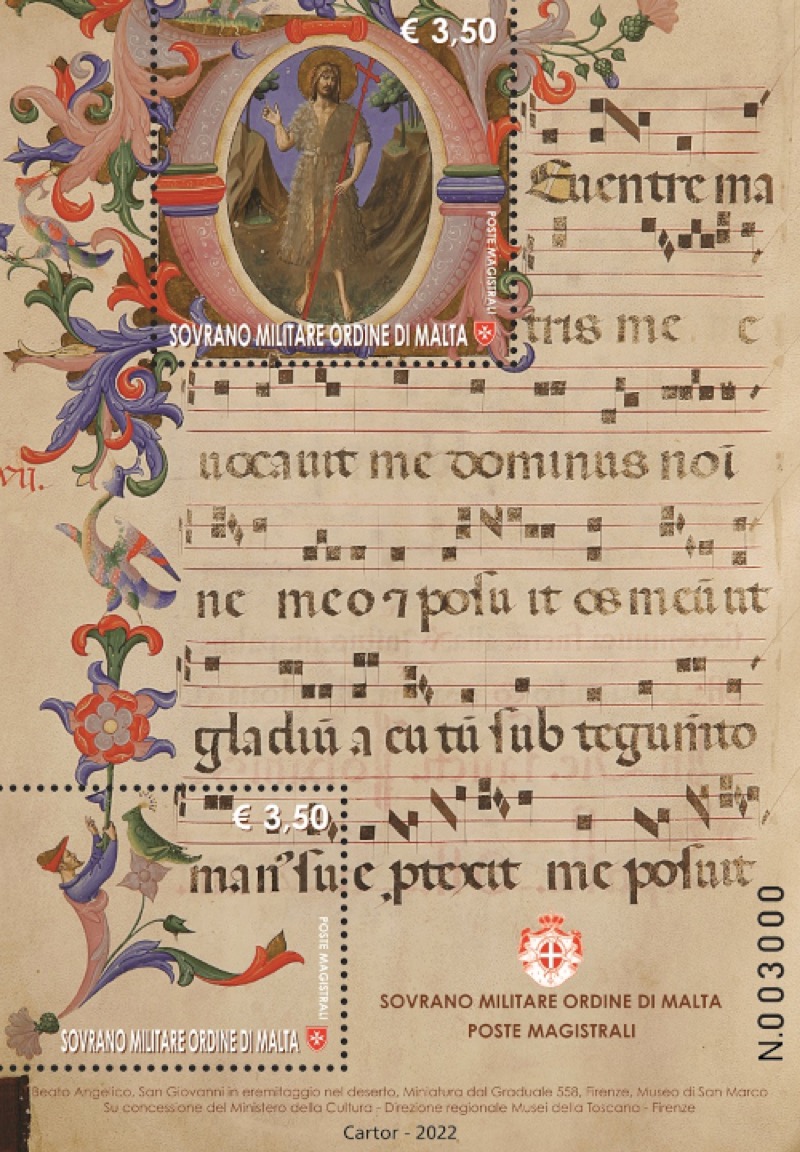 € 3,50
POSTE MAGISTRALI
SOVRANO MILITARE ORDINE DI MALTA
E uentre ma
tris me e
uocauit me dominus noi
ne meo ⁊ posu it os meū ut
gladiū a cu tū sub tegum̄to
vii.
€ 3,50
man' su e ptexit me posuit
POSTE MAGISTRALI
SOVRANO MILITARE ORDINE DI MALTA
SOVRANO MILITARE ORDINE DI MALTA
POSTE MAGISTRALI
N.003000
Beato Angelico, San Giovanni in eremitaggio nel deserto, Miniatura dal Graduale 558, Firenze, Museo di San Marco
Su concessione del Ministero della Cultura - Direzione regionale Musei della Toscano - Firenze
Cartor - 2022